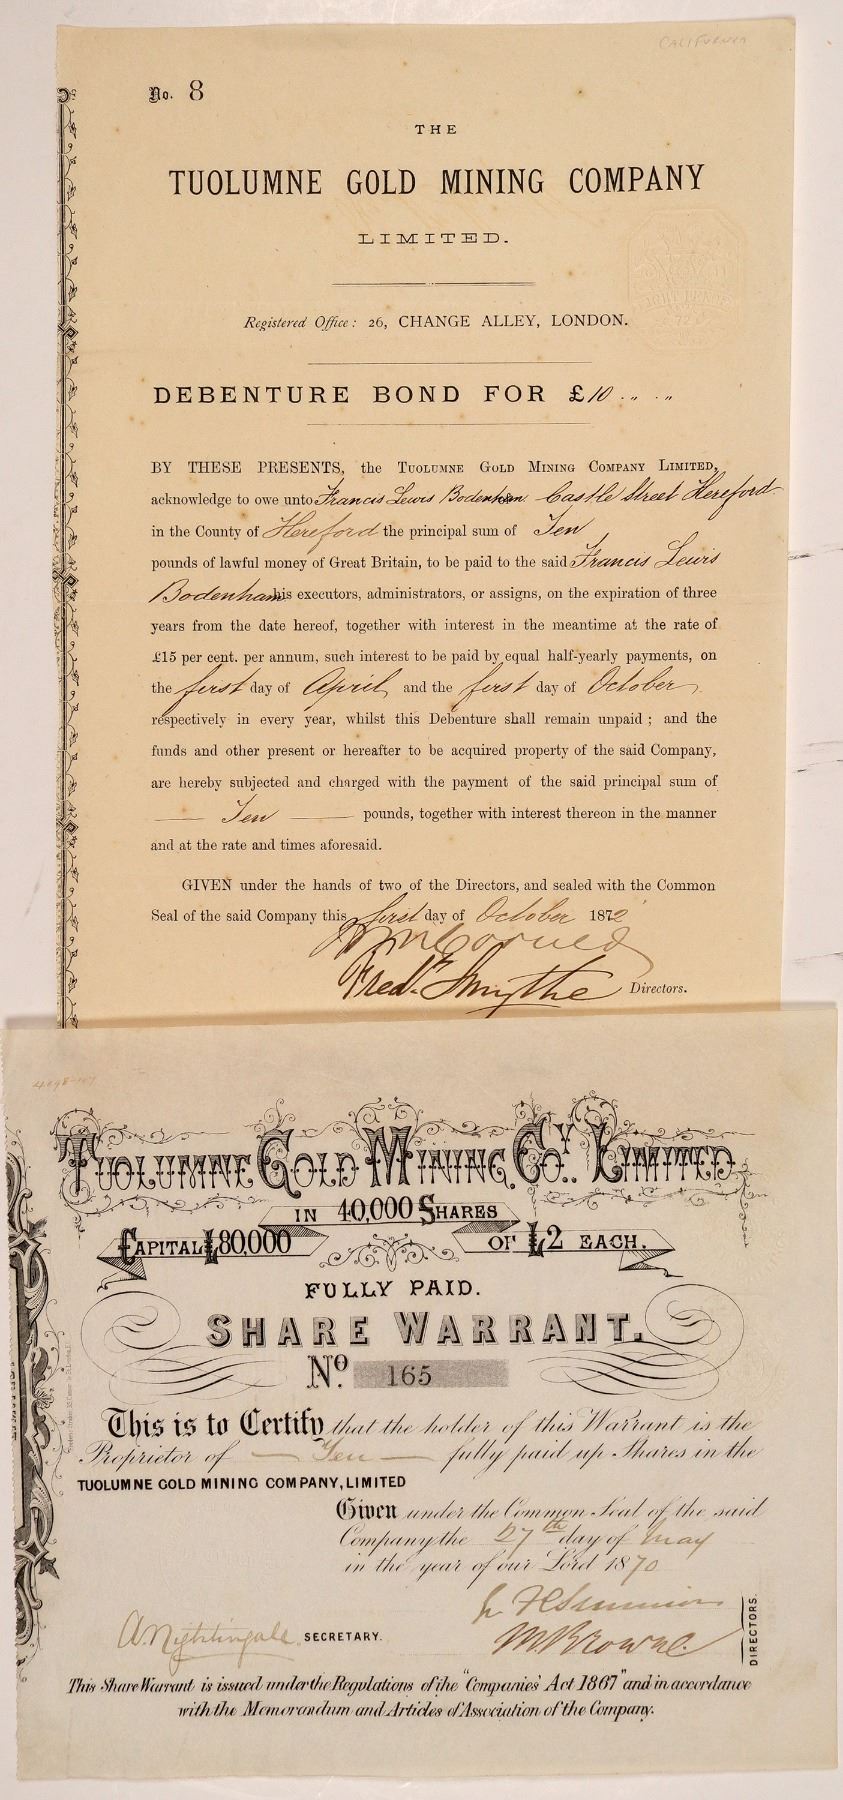 CALIFORNIA
No. 8
THE
TUOLUMNE GOLD MINING COMPANY
LIMITED.
Registered Office: 26, CHANGE ALLEY, LONDON.
DEBENTURE BOND FOR £10 . „ . „
BY THESE PRESENTS, the Tuolumne Gold Mining Company Limited,
acknowledge to owe unto Francis Lewis Bodenham Castle Street Hereford
in the County of Hereford the principal sum of Ten
pounds of lawful money of Great Britain, to be paid to the said Francis Lewis
Bodenham his executors, administrators, or assigns, on the expiration of three
years from the date hereof, together with interest in the meantime at the rate of
£15 per cent. per annum, such interest to be paid by equal half-yearly payments, on
the first day of April and the first day of October
respectively in every year, whilst this Debenture shall remain unpaid; and the
funds and other present or hereafter to be acquired property of the said Company,
are hereby subjected and charged with the payment of the said principal sum of
— Ten — pounds, together with interest thereon in the manner
and at the rate and times aforesaid.
GIVEN under the hands of two of the Directors, and sealed with the Common
Seal of the said Company this first day of October 1872
Fredk. Smythe Directors.
TUOLUMNE GOLD MINING COY. LIMITED.
IN 40,000 SHARES
CAPITAL £80,000 OF £2 EACH.
FULLY PAID.
SHARE WARRANT.
No. 165
This is to Certify that the holder of this Warrant is the
Proprietor of — Ten — fully paid up Shares in the
TUOLUMNE GOLD MINING COMPANY, LIMITED
Given under the Common Seal of the said
Company the 27th day of May
in the year of our Lord 1870
A. Nightingale SECRETARY.
M. Browne
DIRECTORS.
This Share Warrant is issued under the Regulations of the "Companies' Act 1867" and in accordance
with the Memorandum and Articles of Association of the Company.